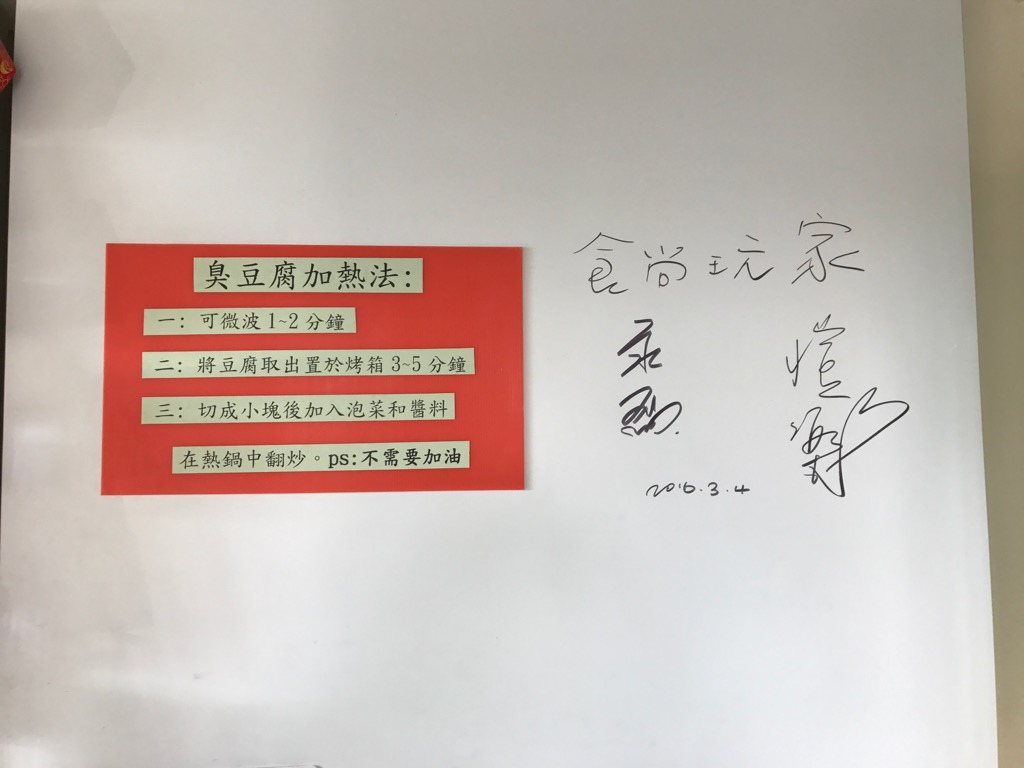 臭豆腐加熱法:
一: 可微波 1~2 分鐘
二: 將豆腐取出置於烤箱 3~5 分鐘
三: 切成小塊後加入泡菜和醬料
在熱鍋中翻炒。ps:不需要加油
食尚玩家
2016.3.4